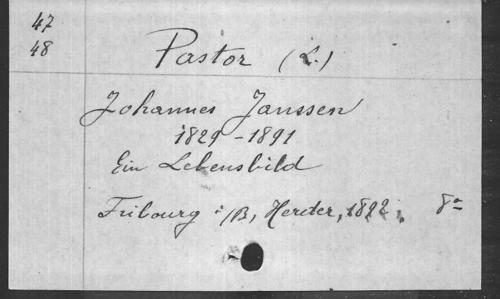 47
48
Pastor (L.)
Johannes Janssen
1829-1891
Ein Lebensbild
Fribourg i/B, Herder, 1892. 8º